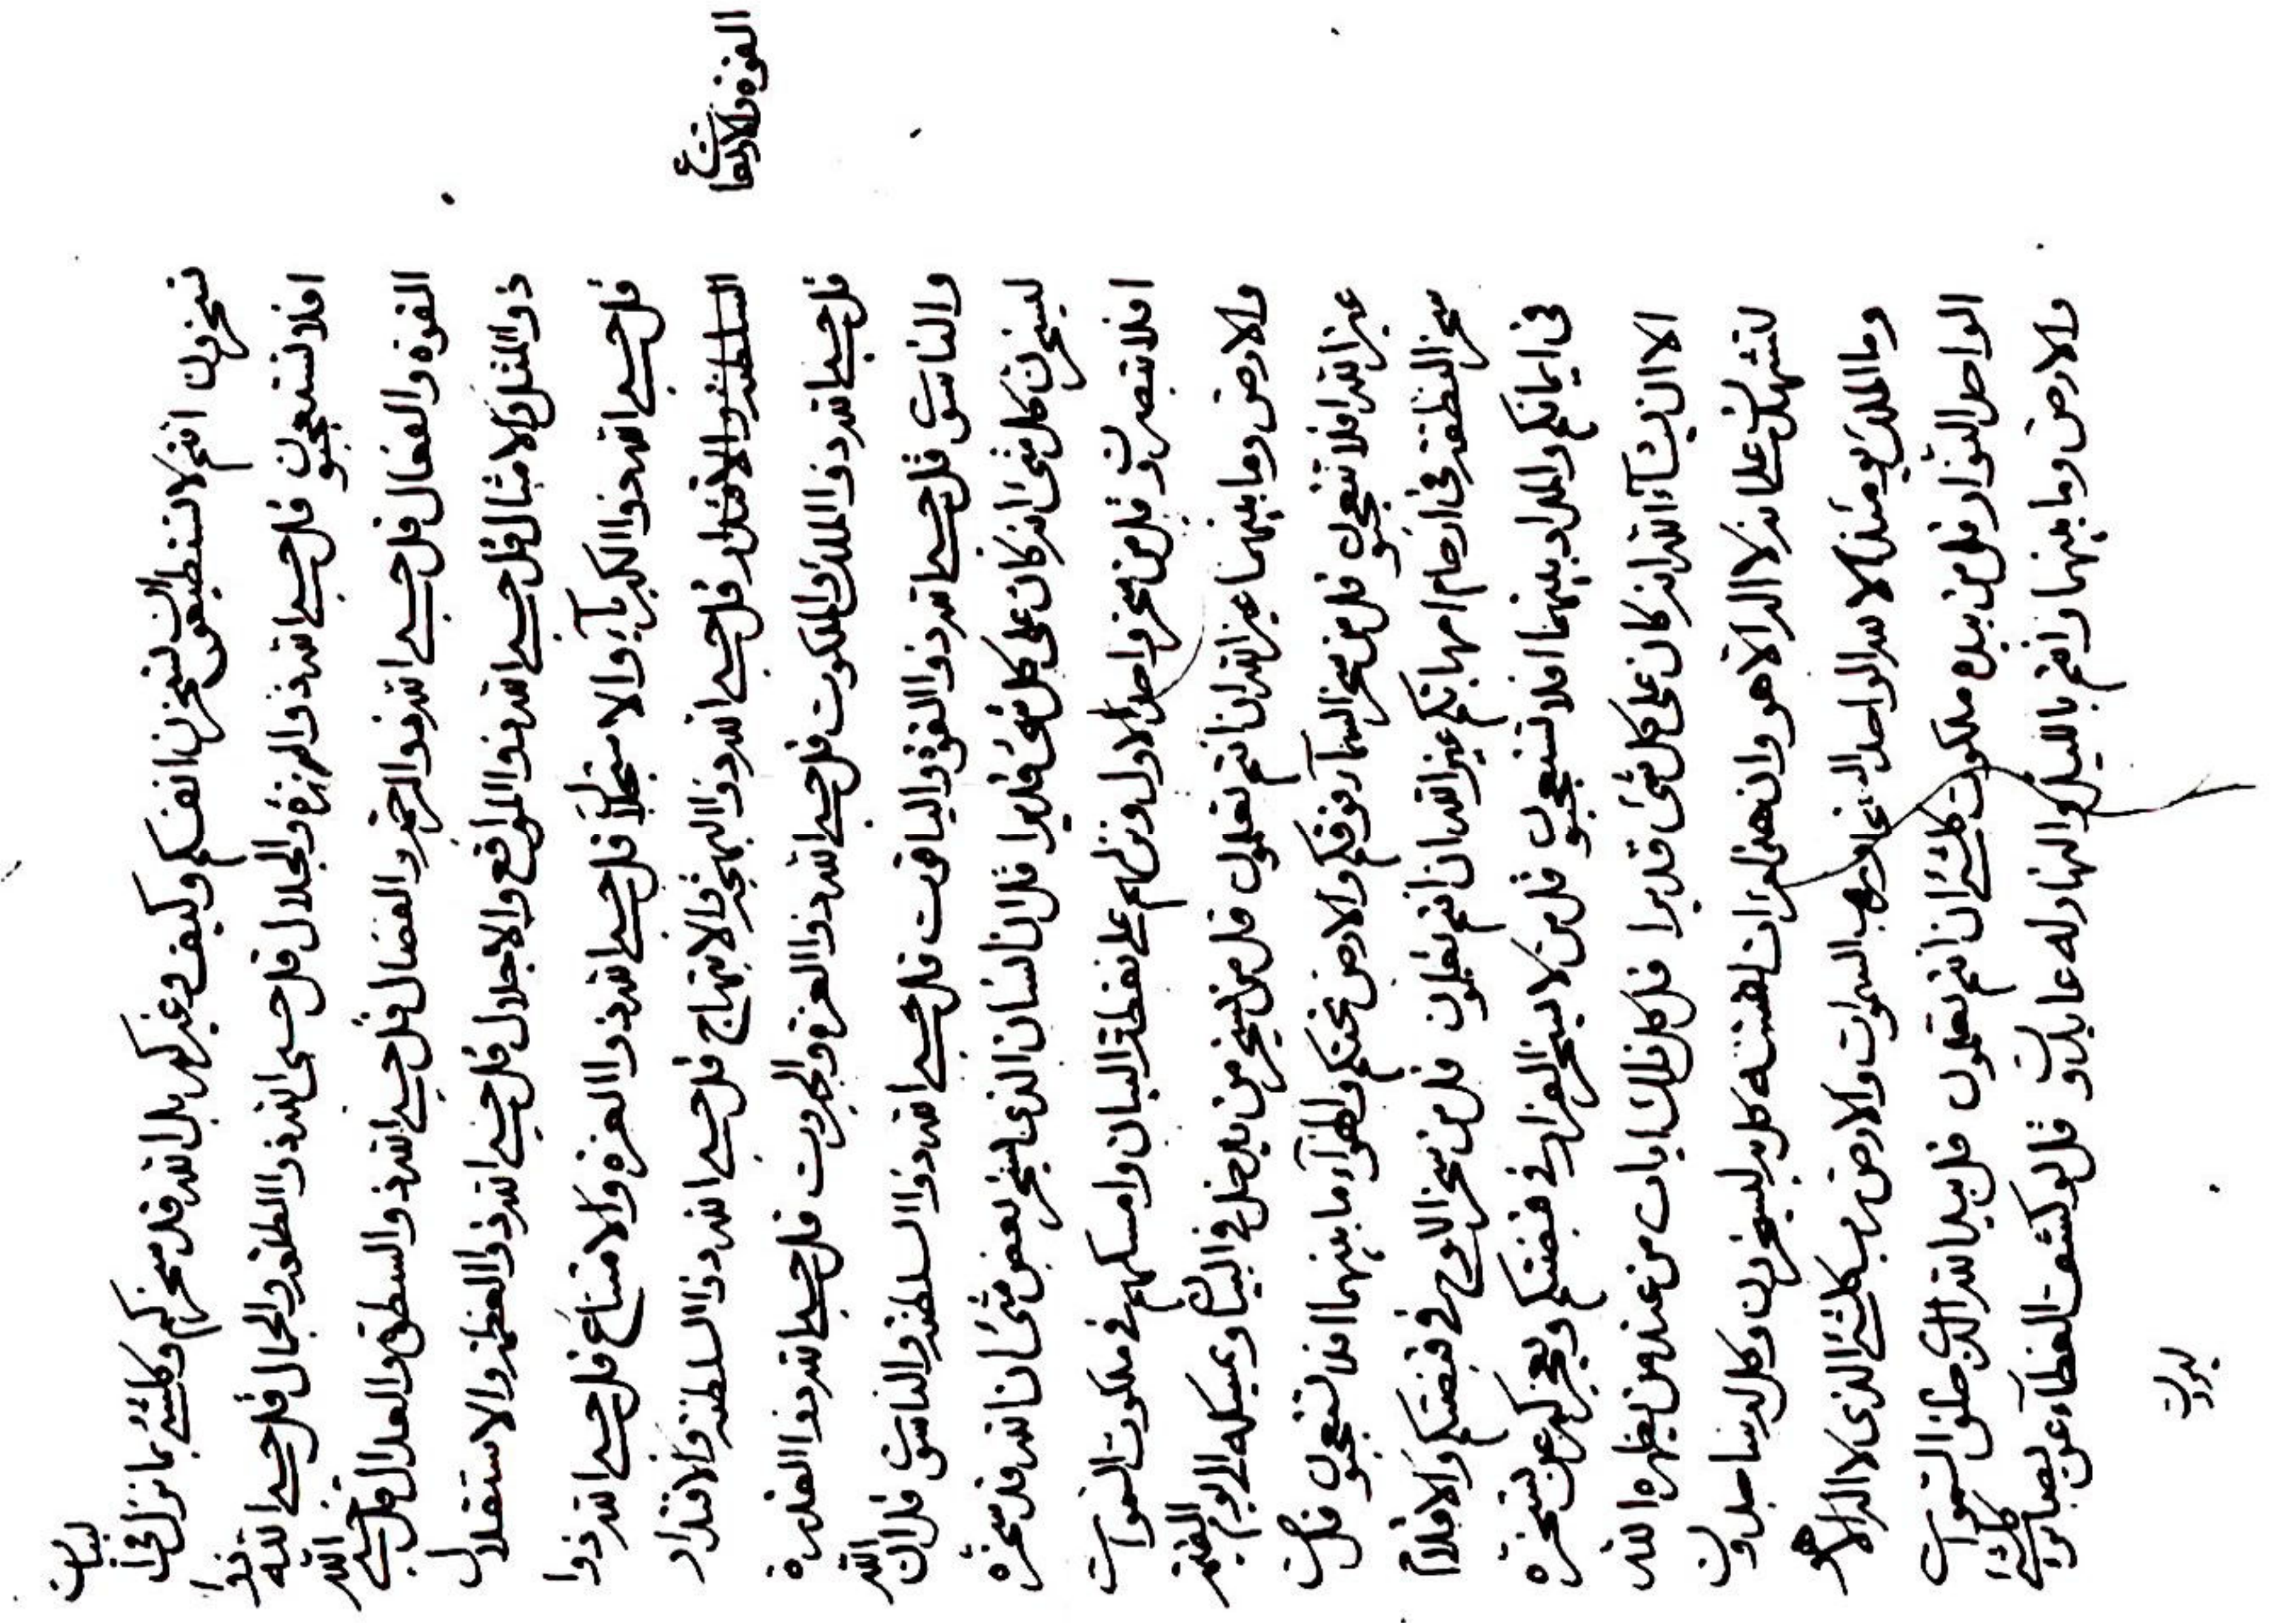 تسخرون انتم لا تستطيعون لتسخرنها انفسكم وكيف وغيركم بل الله قد سخركم وكلشئ بما نزل فى البيان
افلا تستعجبون قل حسبى الله ذو العزة والجلال قل حسبى الله ذو الطلعة والجمال قل حسبى الله ذو
القوة والفعال قل حسبى الله ذو الرحمة والفضال قل حسبى الله ذو السطوة والعدال قل حسبى الله
ذو المثل والامثال قل حسبى الله ذو المواقع والاجلال قل حسبى الله ذو العظمة والاستقلال
قل حسبى الله ذو الكبرياء والاستجلال قل حسبى الله ذو العزة والامتناع قل حسبى الله ذو
القوة والارتفاع
السلطنة والاقتدار قل حسبى الله ذو البهجة والابتهاج قل حسبى الله ذو السلطنة والاقتدار
قل حسبى الله ذو الملك والملكوت قل حسبى الله ذو العزة والجبروت قل حسبى الله ذو القدرة
والناسوت قل حسبى الله ذو القوة والياقوت قل حسبى الله ذو السلطنة والناسوت قل ان الله
ليسخرن كل شئ انه كان على كل شئ قديرا قل ان انسان الذى يسخر بعض شئ ان الله قد سخره
افلا تبصرون قل من سخر واحد الاول ونزلهم على نقطة البيان وامسكهم فى ملكوت السموات
والارض وما بينهما غير الله ان انتم تعلمون قل من يسخر من يدخل فى البيان ويمسكه الى يوم القيمة
غير الله افلا تتعجبون قل من سخر السماء فوقكم والارض تحتكم والهواء ما بينهما افلا تتعجبون قل من
سخر النطفة فى ارحام امهاتكم غير الله ان انتم تعلمون قل من سخر الارواح فى قبضتكم والافلا
فى ايمانكم والمداد بينهما افلا تستعجبون قل من لا يسخر القرار فى قبضتكم ويعجزكم عن تسخره
الا ان يشاء الله انه كان على كل شئ قديرا قل كل ذلك ايات من عند من يظهره الله
لتشهدن على انه لا اله الا هو وان هنالك ان انفسه كل به ليسخرون وكل له ساجدون
وما الملك يومئذ الا لله الواحد القهار وهب السموات والارض رب كلشئ الذى لا اله الا هو
الواحد النوار قل من بيده ملكوت كلشئ ان انتم تعلمون قل بيد الله الذى خلق السموات
والارض وما بينهما وانتم بالليل والنهار له عابدون قل لو كشف الغطاء عن بصائر كلشئ
ليرون